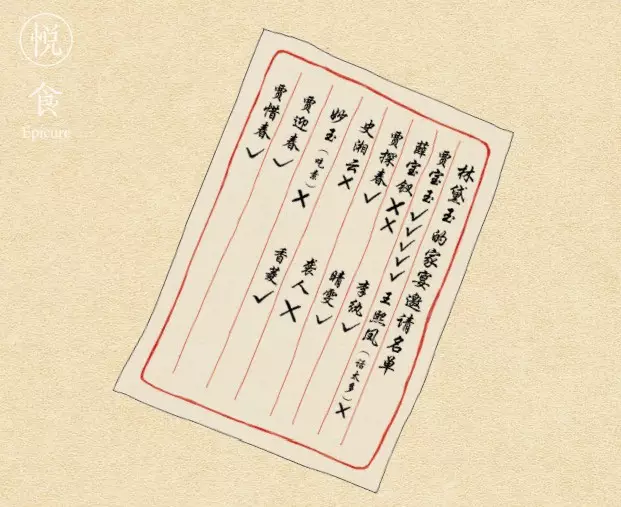 悦食
Epicure
林黛玉的家宴邀请名单
贾宝玉✓✓✓✓✓ 王熙凤（话太多）✗
薛宝钗✗✗
贾探春✓ 李纨✓
史湘云✗ 晴雯✓
妙玉（吃素）✗ 袭人✗
贾迎春✓ 香菱✓
贾惜春✓